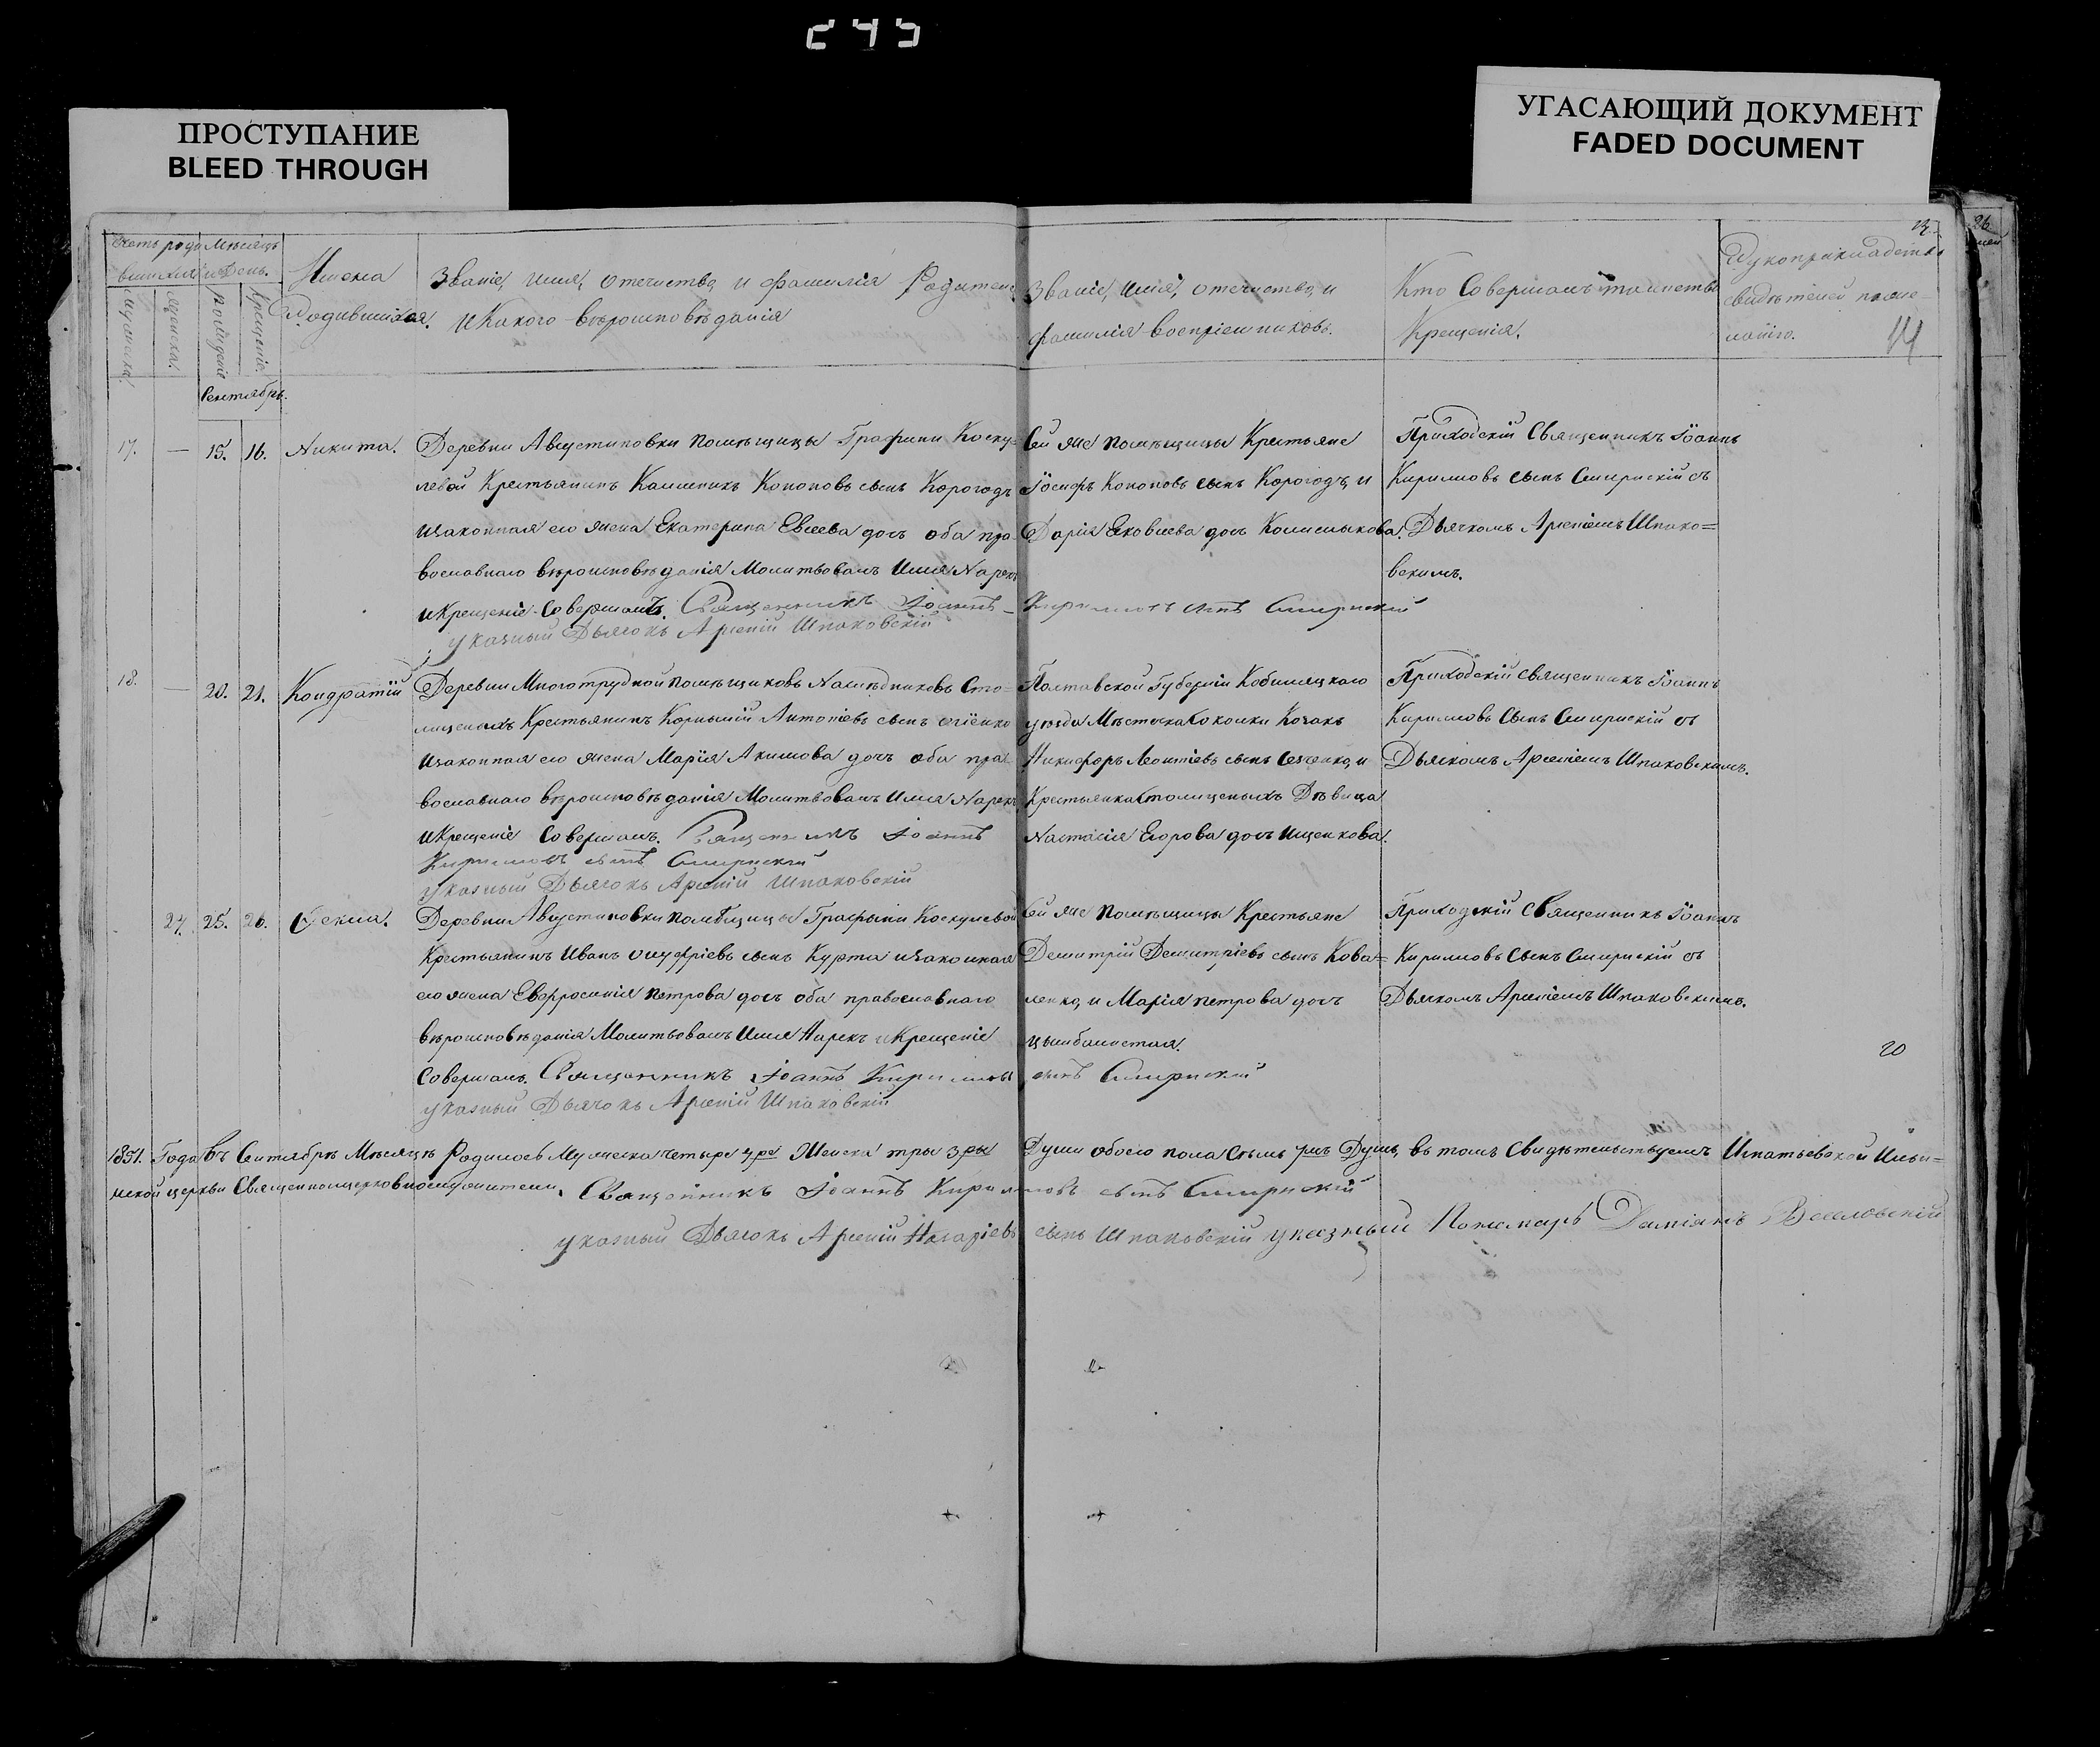 245
ПРОСТУПАНИЕ
BLEED THROUGH
УГАСАЮЩИЙ ДОКУМЕНТ
FADED DOCUMENT
26
Счетъ роди
вшихся
Мѣсяцъ
и День.
Мужеска.
Женска.
Рожденіе
Крещеніе
Имена
Родившихся.
Званіе, имя, отечество, и фамилія Родителей
и Какого вѣроисповѣданія
Званіе, имя, отечество, и
фамилія воспріемниковъ.
Кто Совершалъ таинство
Крещенія.
Рукоприкладство
свидѣтелей по же-
ланію.
Сентябрь.
17. — 15. 16. Никита.
Деревни Августиновки помѣщицы Графини Коску=
левой Крестьянинъ Каленикъ Кононовъ сынъ Корогодъ
и законная его жена Екатерина Евсеева дочь оба пра-
вославнаго вѣроисповѣданія Молитвовалъ Имя Нарекъ
и Крещеніе Совершалъ. Священникъ Іоаннъ Кириловъ сынъ Смирнскій
указный Дьячокъ Арсеній Шпаковскій
Сей же помѣщицы Крестьяне
Іосифъ Кононовъ сынъ Корогодъ, и
Дарія Яковлева дочь
Приходскій Священникъ Іоаннъ
Кириловъ сынъ Смирнскій съ
Дьячкомъ Арсеніемъ Шпако=
вскимъ.
18. — 20. 21. Кондратій
Деревни Многотрудной помѣщиковъ Наслѣдниковъ Сто=
лиценыхъ Крестьянинъ Корнилій Антоніевъ сынъ
и законная его жена Марія Акимова дочь оба пра-
вославнаго вѣроисповѣданія Молитвовалъ Имя Нарекъ
и Крещеніе Совершалъ. Священникъ Іоаннъ
Кириловъ сынъ Смирнскій
указный Дьячокъ Арсеній Шпаковскій
Полтавской Губерніи Кобиляцкаго
уѣзда Мѣстечка Соколки Козакъ
Никифоръ Леонтіевъ сынъ и
Крестьянка Столиценыхъ Дѣвица
Настасія Егорова дочь Ищенкова.
Приходскій священникъ Іоаннъ
Кириловъ Сынъ Смирнскій съ
Дьячкомъ Арсеніемъ Шпаковскимъ.
27. 25. 26. Фекла.
Деревни Августиновки помѣщицы Графыни Коскулевой
Крестьянинъ Иванъ Онуфріевъ сынъ Курта и законная
его жена Евфросинія Петрова дочь оба православнаго
вѣроисповѣданія Молитвовалъ Имя Нарекъ и Крещеніе
Совершалъ. Священникъ Іоаннъ Кириловъ сынъ Смирнскій
указный Дьячокъ Арсеній Шпаковскій
Сей же помѣщицы Крестьяне
Дешитрій Дешитріевъ сынъ Кова=
ленко, и Марія Петрова дочь
Цымбалистая.
Приходскій Священникъ Іоаннъ
Кириловъ Сынъ Смирнскій съ
Дьячкомъ Арсеніемъ Шпаковскимъ.
20
1851. Года въ Сентябрѣ Мѣсяцѣ Родилось Мужеска четыре 4ре Женска три 3ри Души обоего пола Семь 7мъ Душъ, въ томъ Свидѣтельствуемъ Игнатьевской Ильи=
нской церкви Священноцерковнослужители. Священникъ Іоаннъ Кириловъ сынъ Смирнскій
указный Дьячокъ Арсеній Назаріевъ сынъ Шпаковскій указный Пономарь Даміанъ Веселовскій